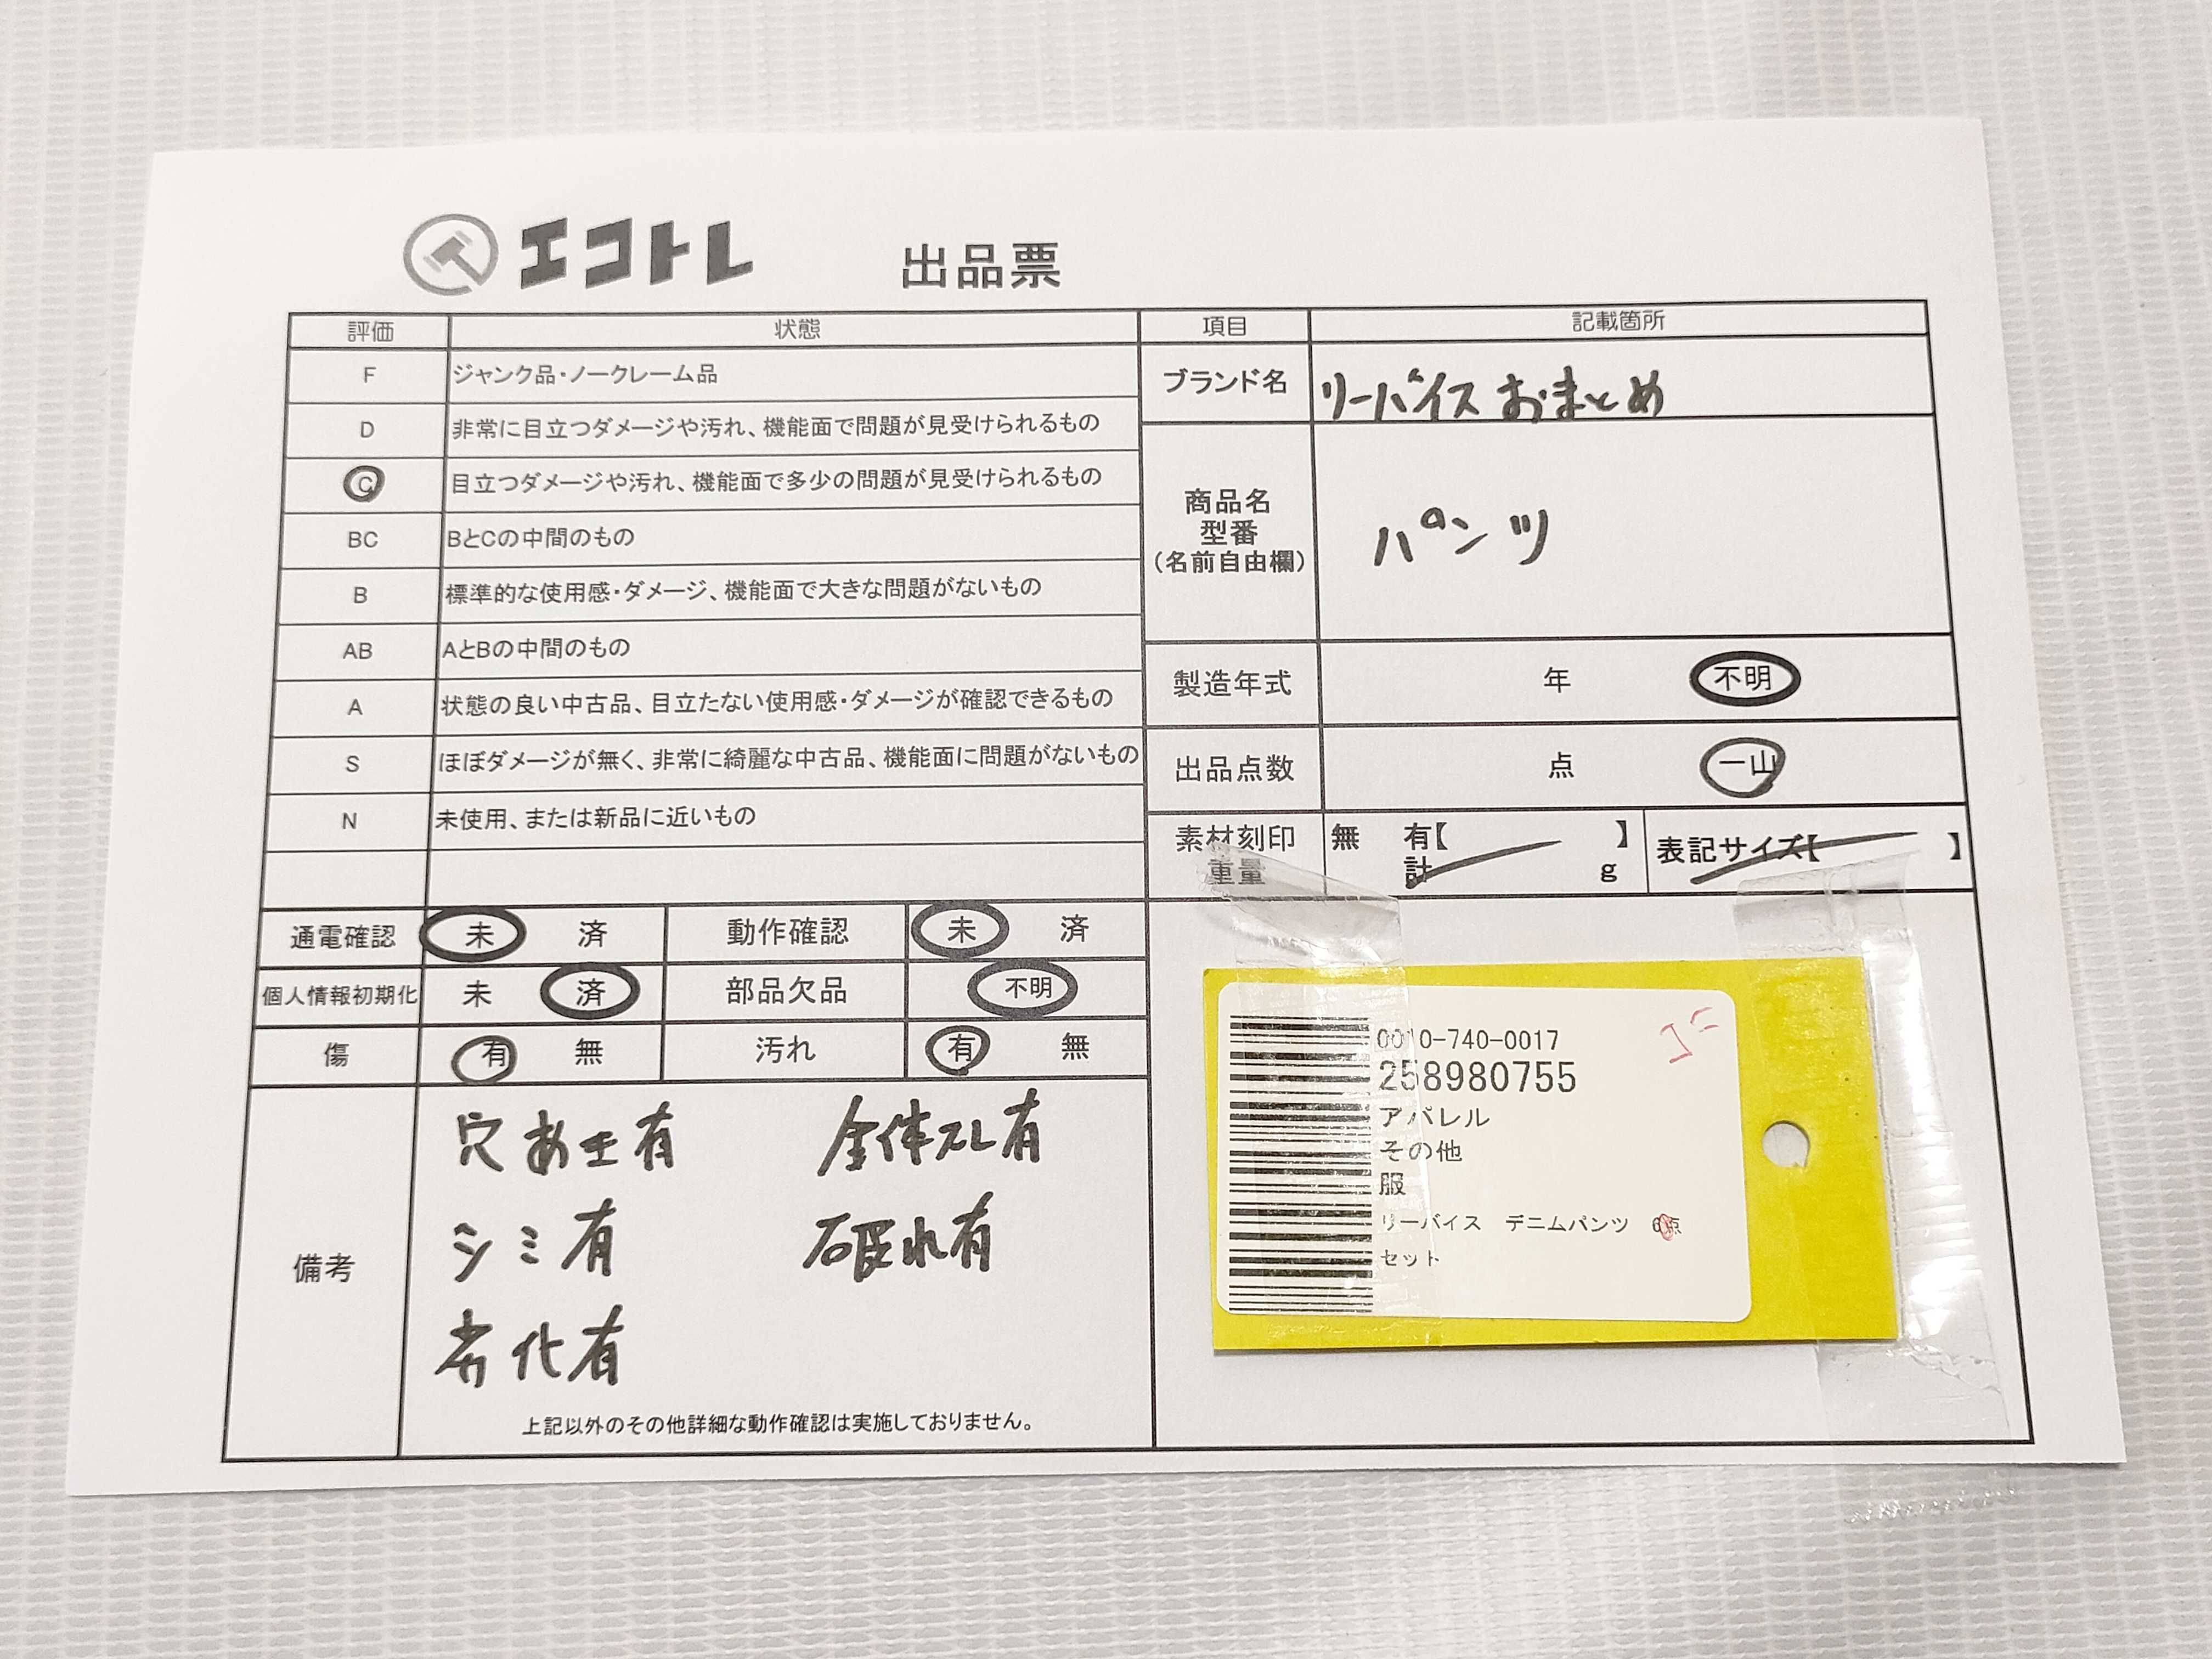 エコトレ 出品票
評価 状態
F ジャンク品・ノークレーム品
D 非常に目立つダメージや汚れ、機能面で問題が見受けられるもの
C 目立つダメージや汚れ、機能面で多少の問題が見受けられるもの
BC BとCの中間のもの
B 標準的な使用感・ダメージ、機能面で大きな問題がないもの
AB AとBの中間のもの
A 状態の良い中古品、目立たない使用感・ダメージが確認できるもの
S ほぼダメージが無く、非常に綺麗な中古品、機能面に問題がないもの
N 未使用、または新品に近いもの
通電確認 未 済 動作確認 未 済
個人情報初期化 未 済 部品欠品 不明
傷 有 無 汚れ 有 無
備考
穴あき有 全体スレ有
シミ有 破れ有
劣化有
上記以外のその他詳細な動作確認は実施しておりません。
項目 記載箇所
ブランド名 リーバイス おまとめ
商品名
型番
(名前自由欄)
パンツ
製造年式 年 不明
出品点数 点 一山
素材刻印 無 有【 】 表記サイズ【 】
重量 計 g
0010-740-0017
258980755
アパレル
その他
服
リーバイス デニムパンツ
セット